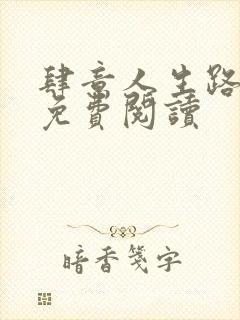 肆意人生路
免費閱讀
暗香箋字